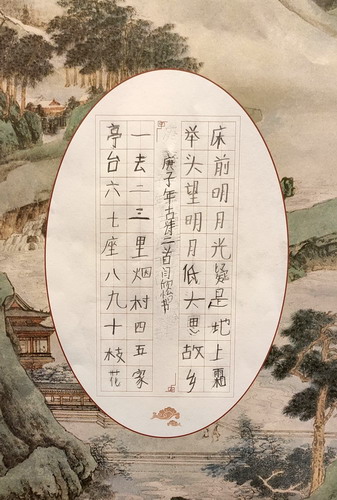 床前明月光疑是地上霜
举头望明月低大思故乡
庚子年古诗二首书
一去二三里烟村四五家
亭台六七座八九十枝花